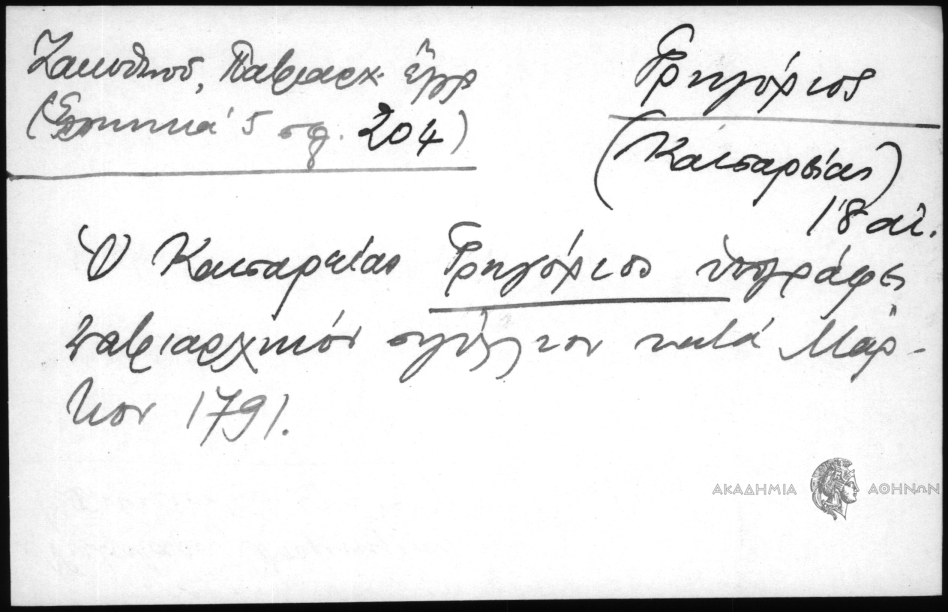 Ζακυθηνοῦ, Πατριαρχ. ἔγγρ
(Ἑλληνικά 5 σ. 204)
Γρηγόριος
(Καισαρείας)
18 αἰ.
Ὁ Καισαρείας Γρηγόριος ὑπογράφει
πατριαρχικόν σιγίλλιον κατά Μάρ-
τιον 1791.
ΑΚΑΔΗΜΙΑ ΑΘΗΝΩΝ